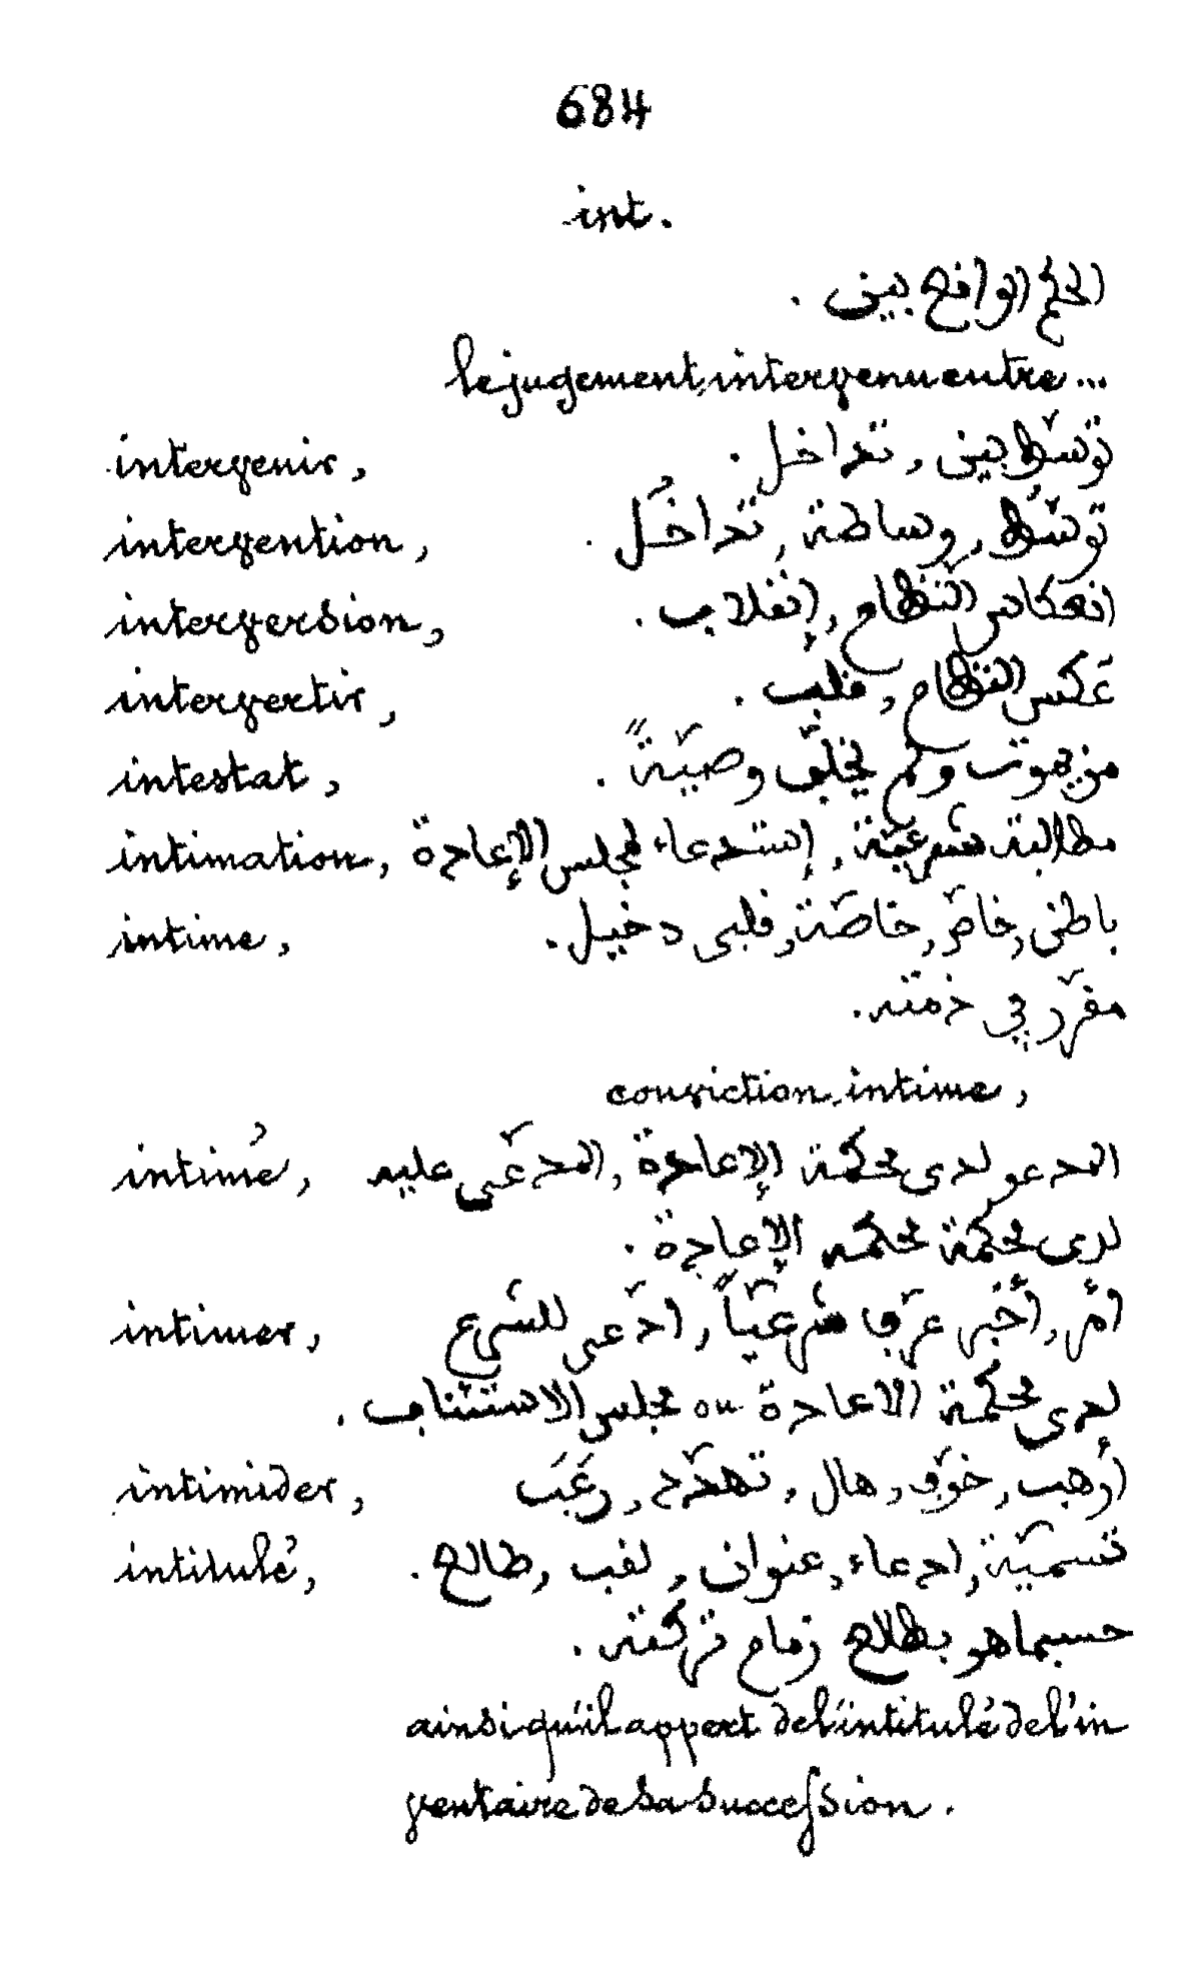 684
int.
الحكم الواقع بين .
le jugement intervenu entre ...
intervenir, توسّط بين , تداخل .
intervention, توسُّط , وساطة , تداخُل .
interversion, انعكاس النظام , إنقلاب .
intervertir, عَكس النظام , قلب .
intestat, من يموت ولم يخلّف وصيّةً .
intimation, مطالبة شرعيّة , إستدعاء لمجلس الإعادة
intime, باطني , خاصّ , خاصّة , قلبي دخيل .
مقرّر في ذمّته .
conviction intime,
intimé, المدعو لدى محكمة الإعادة , المدعّى عليه
لدى محكمة محكمه الإعادة .
intimer, أمر , أخبر عرّف شرعيّاً , ادّعى للشّرع
لدى محكمة الاعادة ou مجلس الاستئناف .
intimider, أرهب , خوّف , هال , تهدّد , رعَبَ
intitulé, تسميّة , ادعاء , عنوان , لقب , طالع .
حسبما هو بطالع زمام تركته .
ainsi qu'il appert de l'intitulé de l'in
ventaire de sa succession .